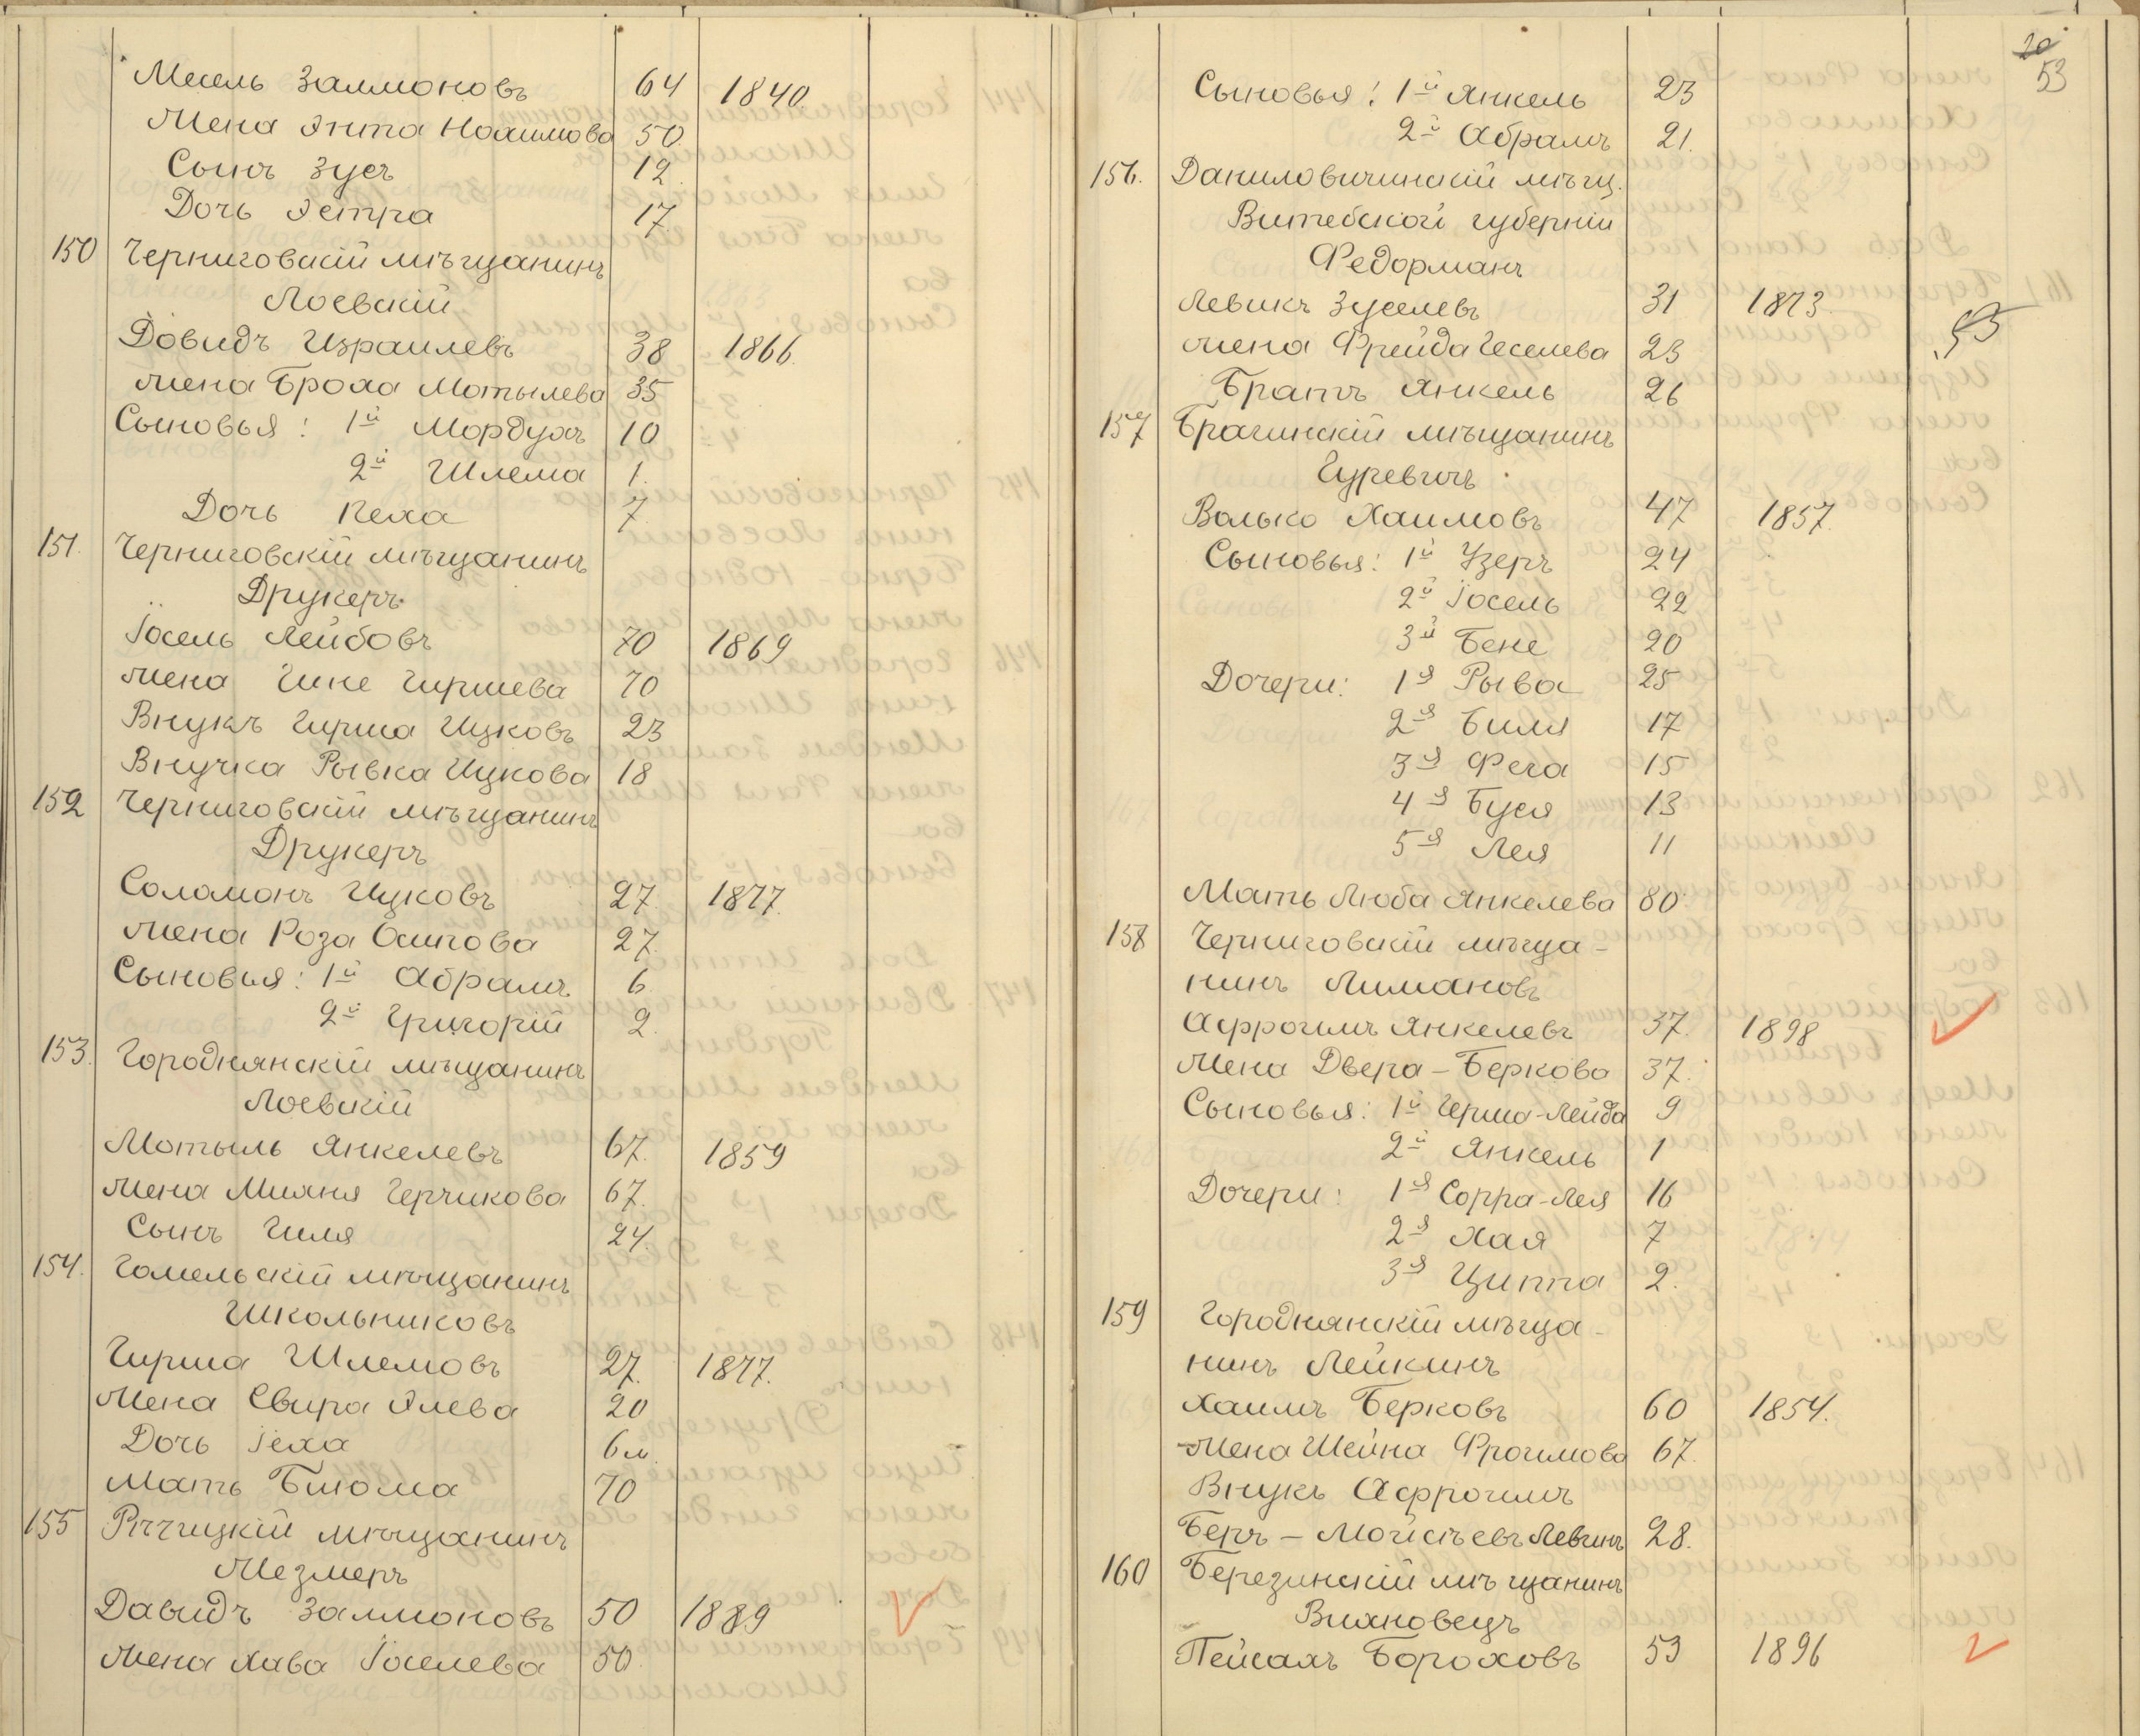 Месель Залмоновъ 64 1840
Жена Энта Нохимова 50
Сынъ Зусъ 12
Дочь Эстра 17
150 Черниговскій мѣщанинъ
Лоевскій
Довидъ Израилевъ 38 1866.
Жена Броха Мотылева 35
Сыновья: 1й Мордухъ 10
2й Шлема 1.
Дочь Кеха 7
151. Черниговскій мѣщанинъ
Друкеръ
Іосель Лейбовъ 70 1869
Жена Гине Гиршева 70
Внукъ Гирша Ицковъ 23
Внучка Рывка Ицкова 18
152 Черниговскій мѣщанинъ
Друкеръ
Соломонъ Ицковъ 27 1877.
Жена Роза Осипова 27.
Сыновья: 1й Абрамъ 6
2й Григорій 2
153. Городнянскій мѣщанинъ
Лоевскій
Мотыль Янкелевъ 67. 1859
Жена Михня Герчикова 67.
Сынъ Гиля 24.
154. Гомельскій мѣщанинъ
Школьниковъ
Гирша Шлемовъ 27. 1877.
Жена Свира Элева 20
Дочь Іеха 6 м.
Мать Блюма 70
155 Рѣчицкій мѣщанинъ
Мезмеръ
Давидъ Залмоновъ 50 1889
Жена Хава Іоселева 50
20
53
Сыновья: 1й Янкель 23
2й Абрамъ 21.
156. Даниловичинскій мѣщ.
Витебской губерніи
Федорманъ
Левикъ Зуселевъ 31 1873.
Жена Фрейда Геселева 23
Братъ Янкель 26
157 Брагинскій мѣщанинъ
Гуревичъ
Волько Хаимовъ 47 1857.
Сыновья: 1й Узеръ 24
2й Іосель 22
3й Бене 20
Дочери: 1я Рыва 25
2я Биля 17
3я Фега 15
4я Буся 13
5я Лея 11
Мать Люба Янкелева 80
158 Черниговскій мѣща-
нинъ Лимановъ
Афроимъ Янкелевъ 37. 1898
Жена Двера-Беркова 37.
Сыновья: 1й Герша-Лейба 9
2й Янкель 1
Дочери: 1я Сорра-Лея 16
2я Хая 7
3я Циппа 2.
159 Городнянскій мѣща-
нинъ Лейкинъ
Хаимъ Берковъ 60 1854.
Жена Шейна Фроимова 67.
Внукъ Афроимъ
Беръ-Мойсѣевъ Левинъ 28.
160 Березинскій мѣщанинъ
Вихновецъ
Пейсахъ Бороховъ 53 1896